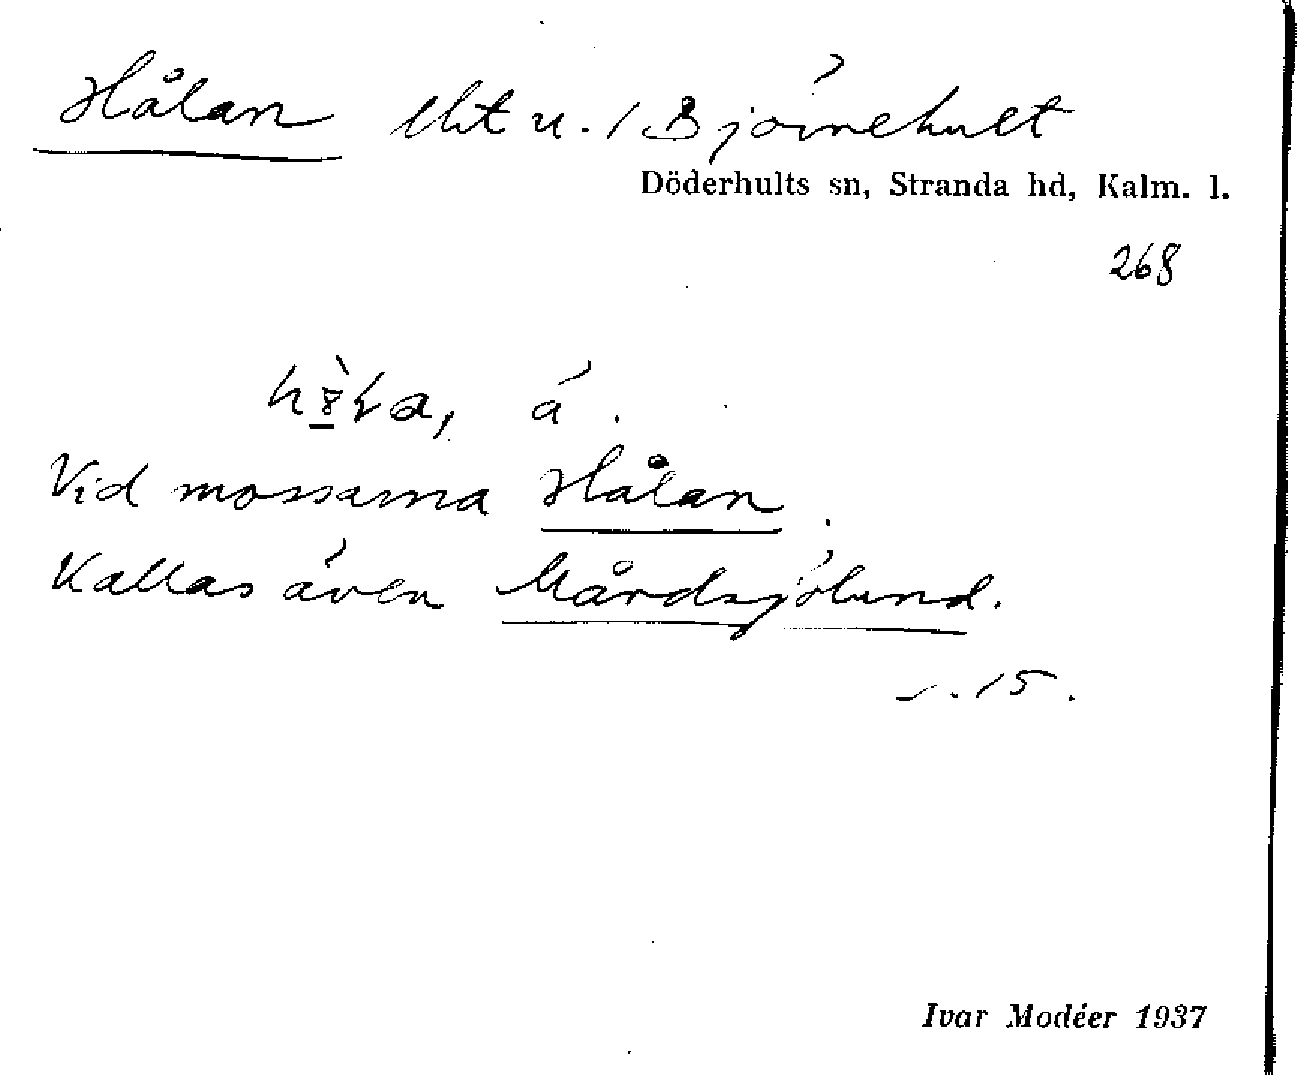 Hålan lht u. / Björnehult
Döderhults sn, Stranda hd, Kalm. l.
268
å.
Vid mossarna Hålan.
Kallas även Mårdsjölund.
s. 15.
Ivar Modéer 1937